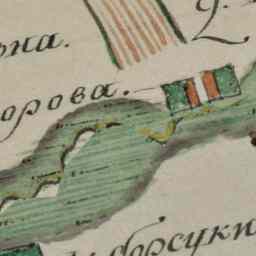 рна.
2.
орова.
борсуки